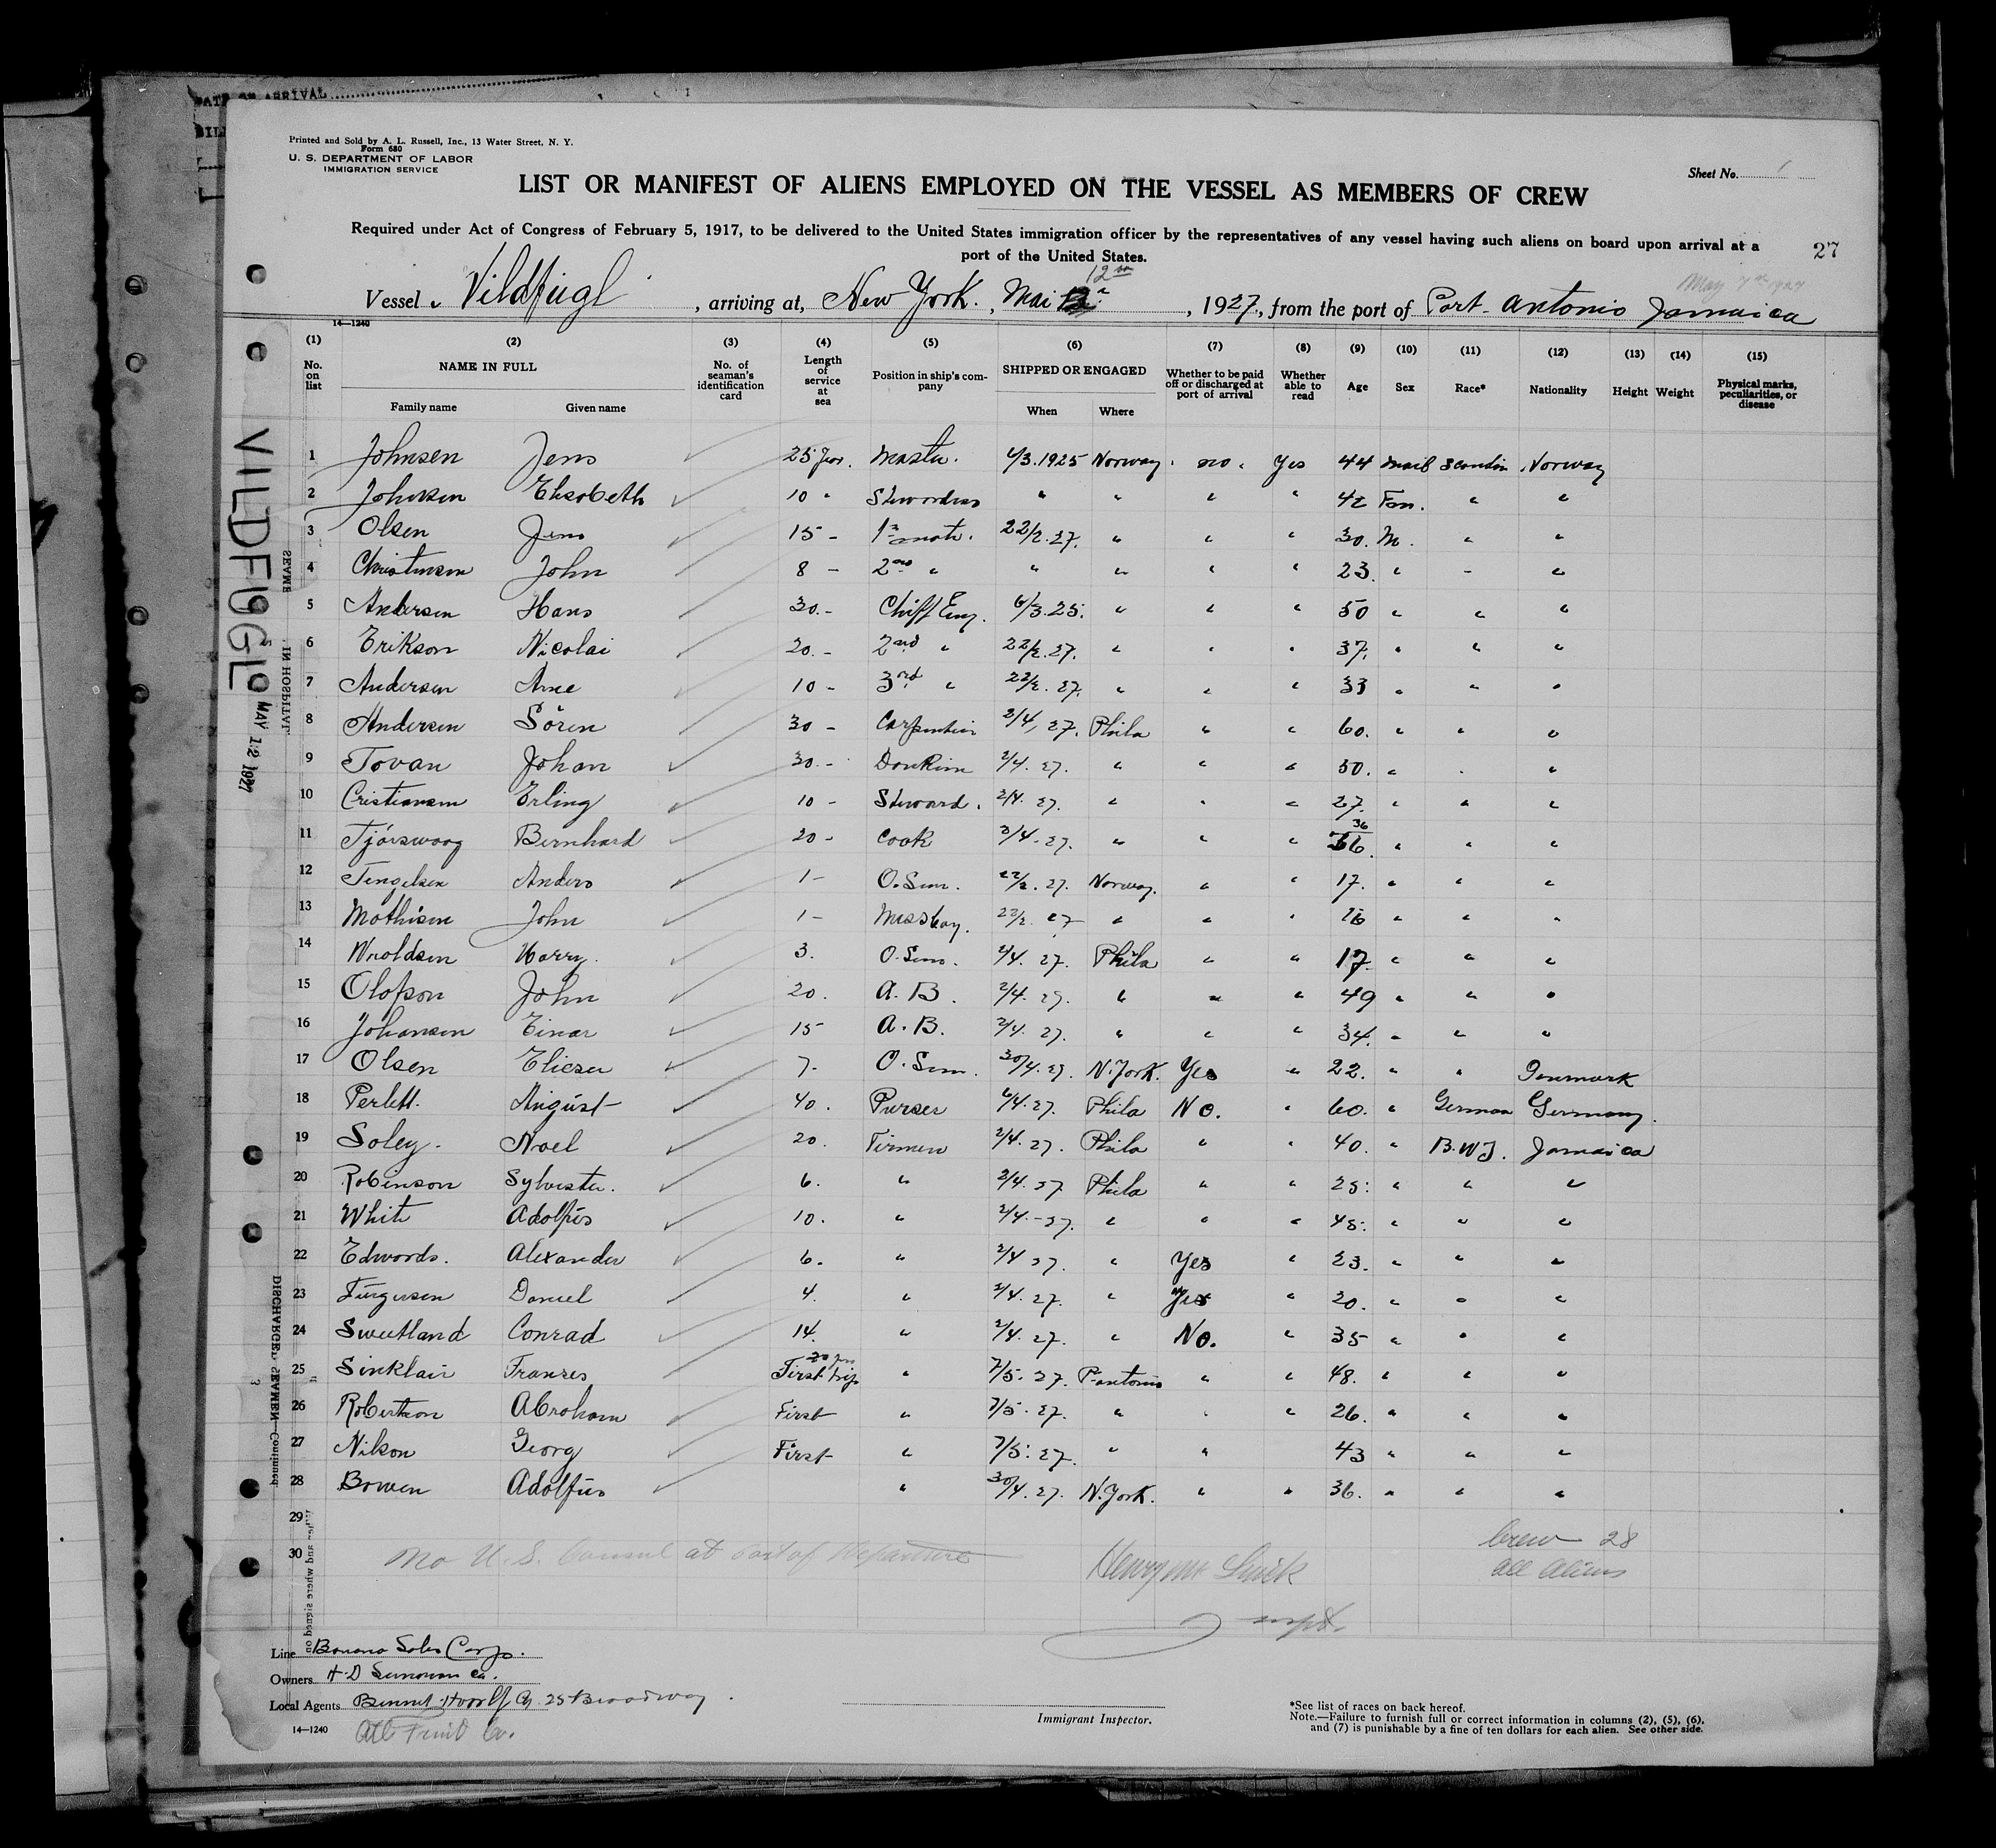 DATE OF ARRIVAL
Printed and Sold by A. L. Russell, Inc., 13 Water Street, N. Y.
Form 680
U. S. DEPARTMENT OF LABOR
IMMIGRATION SERVICE
Sheet No. 1
LIST OR MANIFEST OF ALIENS EMPLOYED ON THE VESSEL AS MEMBERS OF CREW
Required under Act of Congress of February 5, 1917, to be delivered to the United States immigration officer by the representatives of any vessel having such aliens on board upon arrival at a
port of the United States.
27
May 7th 1927
Vessel Vildfugl, arriving at, New York. Mai 12th, 1927, from the port of Port Antonio Jamaica
14—1240
(1) (2) (3) (4) (5) (6) (7) (8) (9) (10) (11) (12) (13) (14) (15)
No. on list NAME IN FULL Family name Given name No. of seaman's identification card Length of service at sea Position in ship's company SHIPPED OR ENGAGED When Where Whether to be paid off or discharged at port of arrival Whether able to read Age Sex Race* Nationality Height Weight Physical marks, peculiarities, or disease
1 Johnsen Jens 25 Master. 4/3.1925 Norway. no. Yes 44 Norway
2 Johnsen Elisabeth 10 " Stewardess " " " " 42 Fem. " "
3 Olsen Jens 15 - 22/2.27. " " " 30. M. " "
4 John 8 - 2nd " " " " " 23. " - "
5 Andersen Hans 30.- Chiff Eng. 6/3.25. " " " 50 " " "
6 Erikson Nicolai 20.- 2nd " 22/2.27. " " " 37. " " "
7 Andersen Arne 10 - 3rd " 22/2.27. " " " 33 " " "
8 Andersen Sören 30 - 2/4, 27. Phila " " 60. " " "
9 Tovan Johan 30.- 2/4.27. " " " 50. " . "
10 Erling 10 - Steward. 2/4.27. " " " 27. " " "
11 Bernhard 20 - Cook 2/4.27. " " " 36 36. " " "
12 Anders 1 - O.Sem. 22/2.27. Norway. " " 17. " " "
13 John 1 - Messboy. 22/2.27 " " " 16 " " "
14 Harry. 3. O.Sem. 2/4.27. Phila " " 17. " " "
15 Olofson John 20. A.B. 2/4.27. " " " 49 " " "
16 Johansen Einar 15 A.B. 2/4.27. " " " 34. " " "
17 Olsen 7. O.Sem. 30/4.27. N.York. Yes " 22. " " Denmark
18 Perlett. August 40. Purser 6/4.27. Phila No. " 60. " German Germany.
19 Soley. Noel 20. Firmen 2/4.27. Phila " " 40. " B.W.I. Jamaica
20 Robinson Sylvester. 6. " 2/4.27 Phila " " 25. " " "
21 White Adolfus 10. " 2/4.-27. " " " 45. " " "
22 Edwards. Alexander 6. " 2/4 27. " Yes " 23. " " "
23 Daniel 4. " 2/4.27. " Yes " 20. " " "
24 Sweetland Conrad 14. " 2/4.27. " No. " 35 " " "
25 Sinklair Franses First trip " 7/5.27. P.antonio " " 48. " " "
26 Robertson Abraham First " 7/5.27. " " " 26. " " "
27 Nilson Georg First " 7/5.27. " " 43 " " "
28 Bowen Adolfus " 30/4.27. N.York. " " 36. " " "
29
30
No U.S. Consul at Port of Departure
Crew 28
All Aliens
Line Banana Sales Corp.
Owners
Local Agents 25 Broadway.
14—1240
Atl Fruit Co.
Immigrant Inspector.
*See list of races on back hereof.
Note.—Failure to furnish full or correct information in columns (2), (5), (6),
and (7) is punishable by a fine of ten dollars for each alien. See other side.
VILDFUGL
MAY 12 1927
SEAMEN
IN HOSPITAL
DISCHARGED SEAMEN—Continued